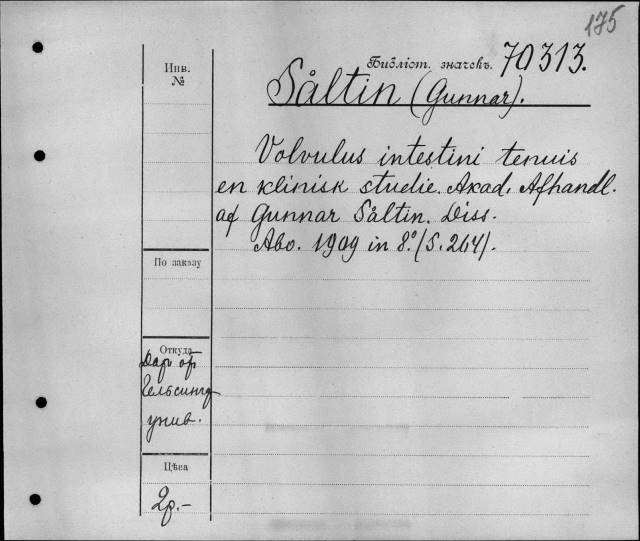 175
Инв.
№
Библіот. значекъ. 70313.
Såltin (Gunnar).
Volvulus intestini tenuis
en klinisk studie. Akad. Afhandl.
af Gunnar Såltin. Diss.
Abo. 1909 in 8.° (S. 264).
По заказу
Откуда
Дар. от
Гельсингф
унив.
Цѣна
2р.-